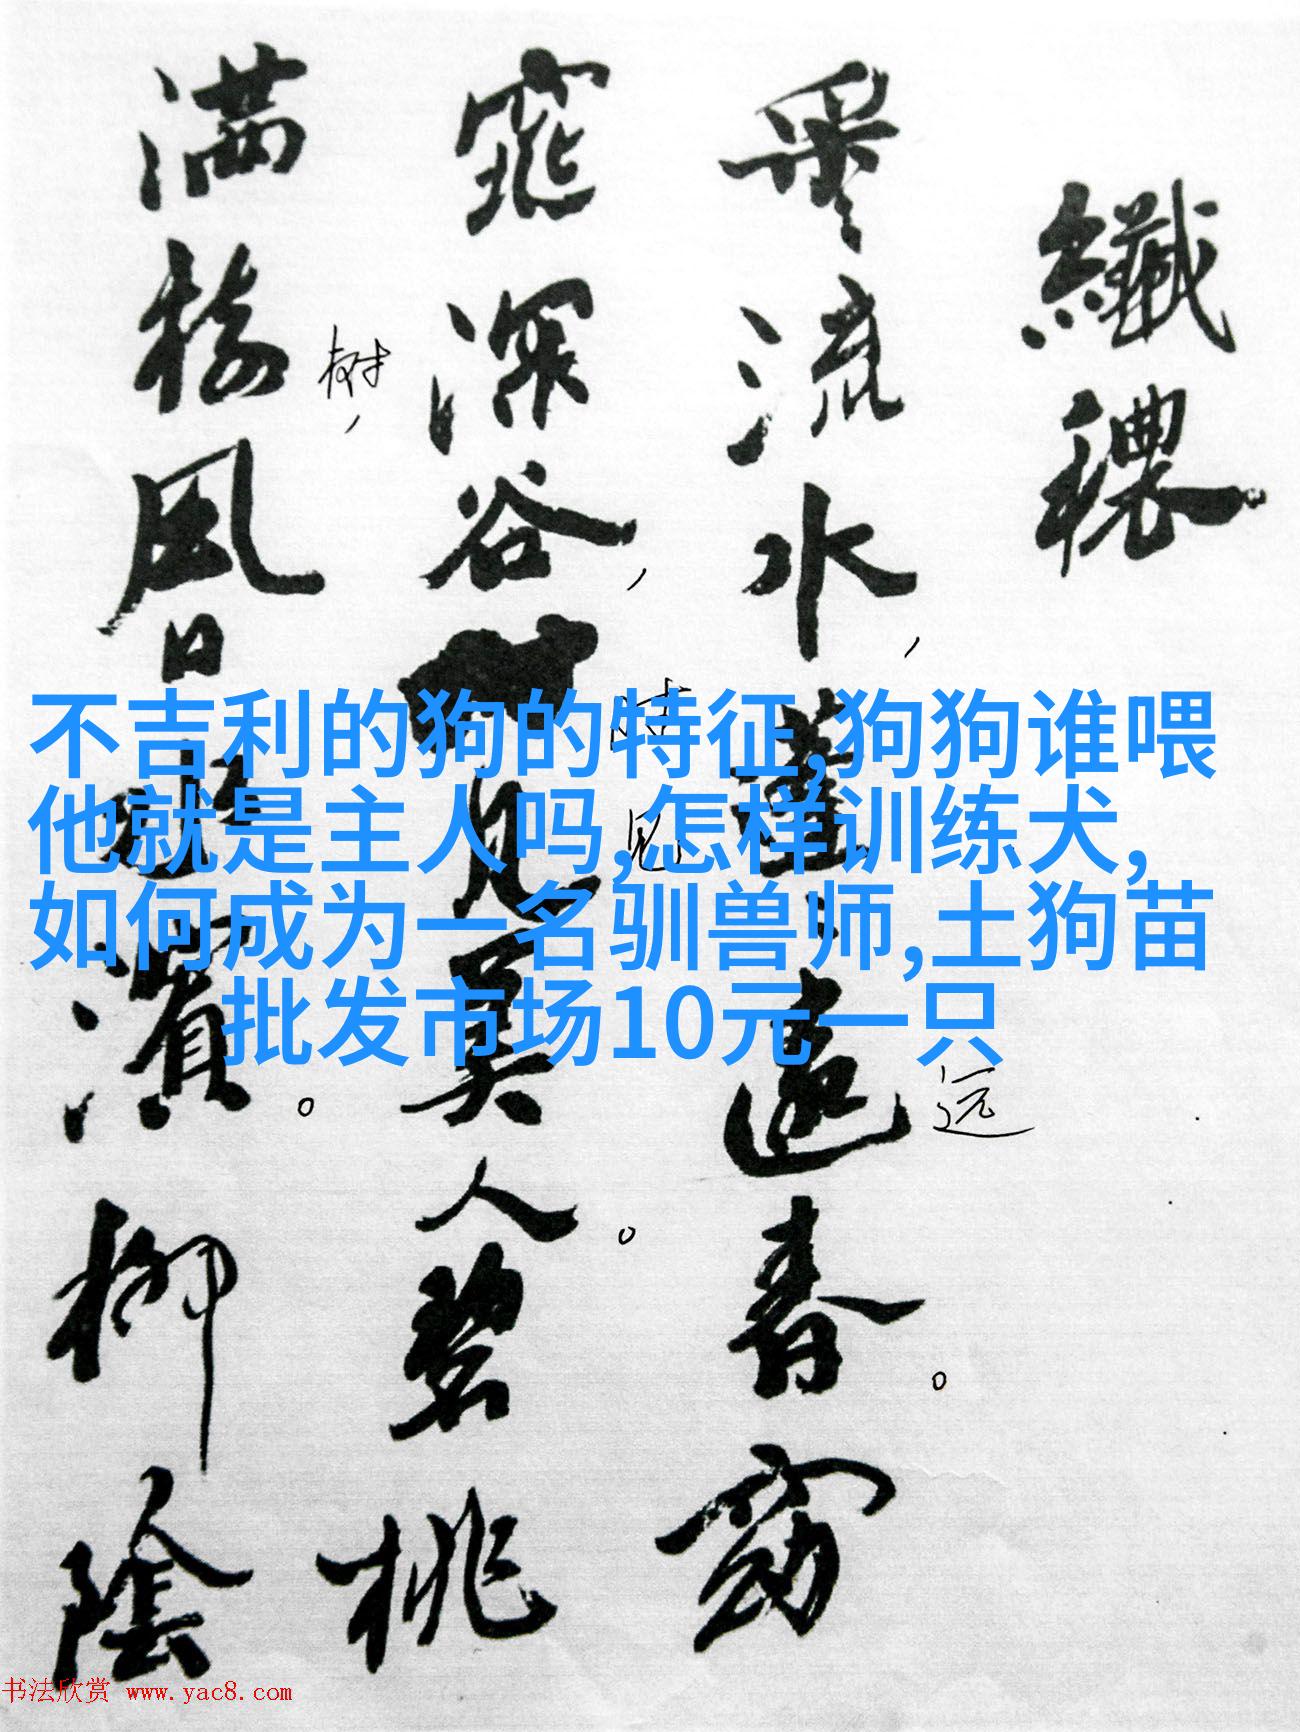 纖穠
采流水，蓬蓬遠春。窈
远
窕深谷，見美人。碧桃
时
见
满樹风日水濱。柳陰
树，
不吉利的狗的特征,狗狗谁喂
他就是主人吗,怎样训练犬,
如何成为一名驯兽师,土狗苗
批发市场10元一只
书法欣赏 www.yac8.com